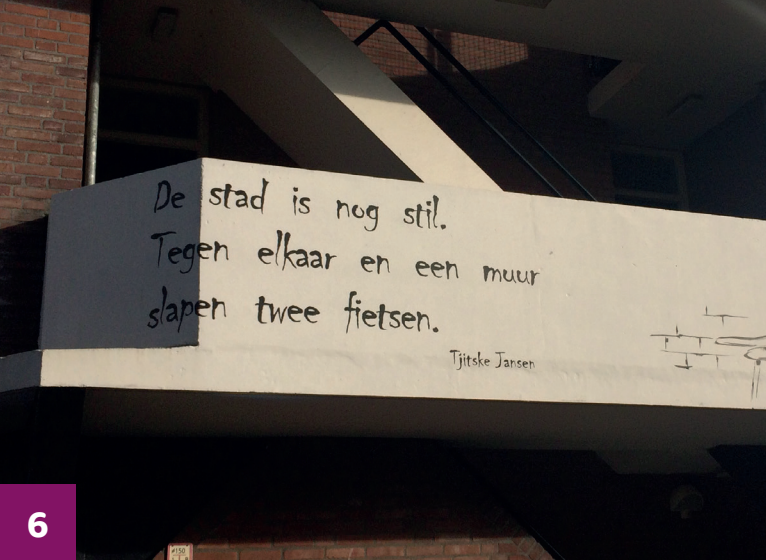 De stad is nog stil.
Tegen elkaar en een muur
slapen twee fietsen.
Tjitske Jansen
6